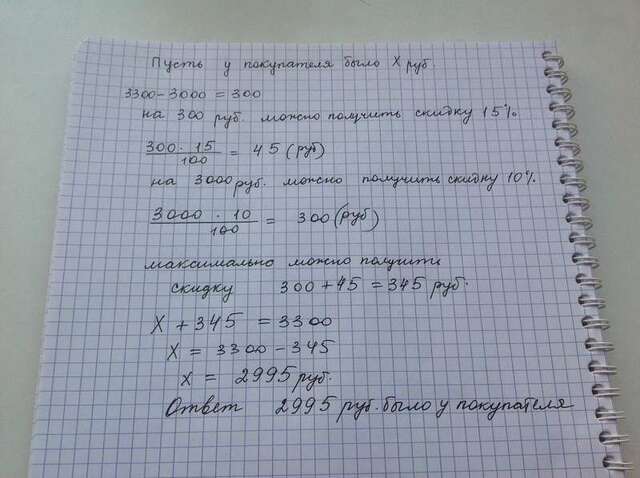 Пусть у покупателя было X руб.
3300 - 3000 = 300
на 300 руб. можно получить скидку 15%
300 · 15 / 100 = 45 (руб)
на 3000 руб. можно получить скидку 10%.
3000 · 10 / 100 = 300 (руб)
максимально можно получить
скидку 300 + 45 = 345 руб.
X + 345 = 3300
X = 3300 - 345
x = 2995 руб.
Ответ 2995 руб. было у покупателя